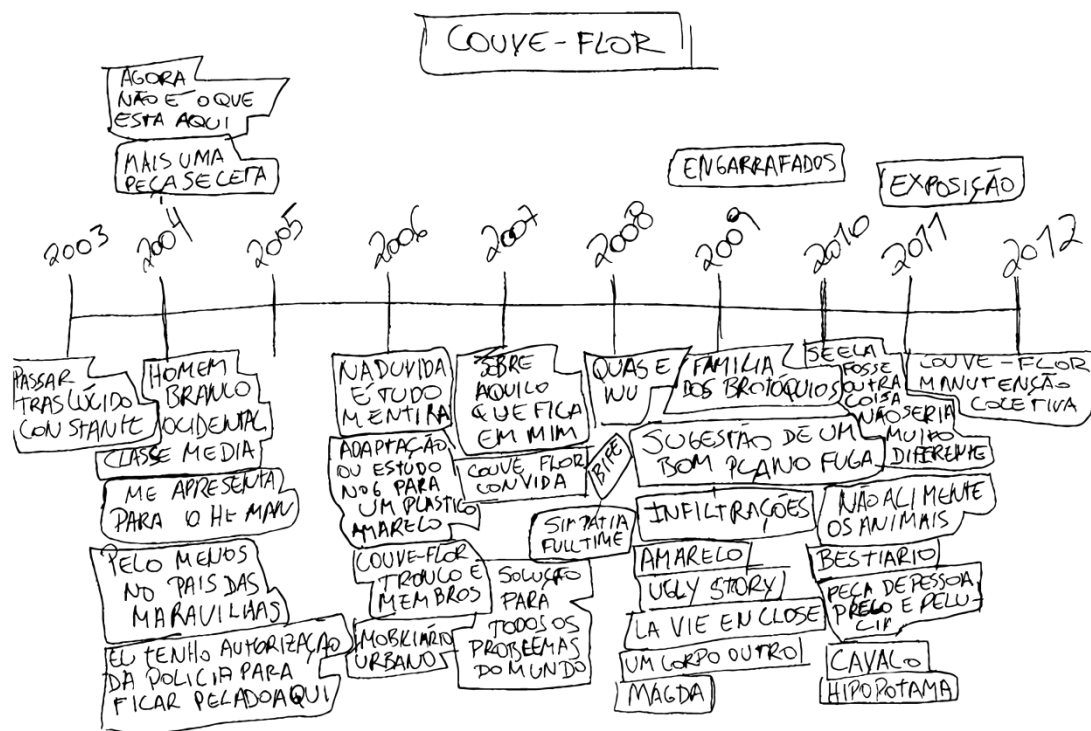 COUVE-FLOR
AGORA
NÃO É O QUE
ESTA AQUI
MAIS UMA
PEÇA SECETA
ENGARRAFADOS
EXPOSIÇÃO
2003
2004
2005
2006
2007
2008
2009
2010
2011
2012
PASSAR
TRASLÚCIDO
CONSTANTE
HOMEM
BRANCO
OCIDENTAL
CLASSE MEDIA
ME APRESENTA
PARA O HE MAN
PELO MENOS
NO PAIS DAS
MARAVILHAS
EU TENHO AUTORIZAÇÃO
DA POLICIA PARA
FICAR PELADO AQUI
NA DUVIDA
É TUDO
MENTIRA
ADAPTAÇÃO
OU ESTUDO
Nº6 PARA
UM PLASTICO
AMARELO
COUVE-FLOR
TRONCO E
MEMBROS
MOBILIÁRIO
URBANO
SOBRE
AQUILO
QUE FICA
EM MIM
COUVE FLOR
CONVIDA
SOLUÇÃO
PARA
TODOS OS
PROBLEMAS
DO MUNDO
QUASE
NU
BIFE
SIMPATIA
FULLTIME
FAMILIA
DOS BROTÓQUIOS
SUGESTÃO DE UM
BOM PLANO FUGA
INFILTRAÇÕES
AMARELO
UGLY STORY
LA VIE EN CLOSE
UM CORPO OUTRO
MAGDA
SE ELA
FOSSE
OUTRA
COISA
NÃO SERIA
MUITO
DIFERENTE
NÃO ALIMENTE
OS ANIMAIS
BESTIARIO
PEÇA DE PESSOA
PREGO E PELU-
CIA
CAVALO
HIPOPOTAMA
COUVE-FLOR
MANUTENÇÃO
COLETIVA